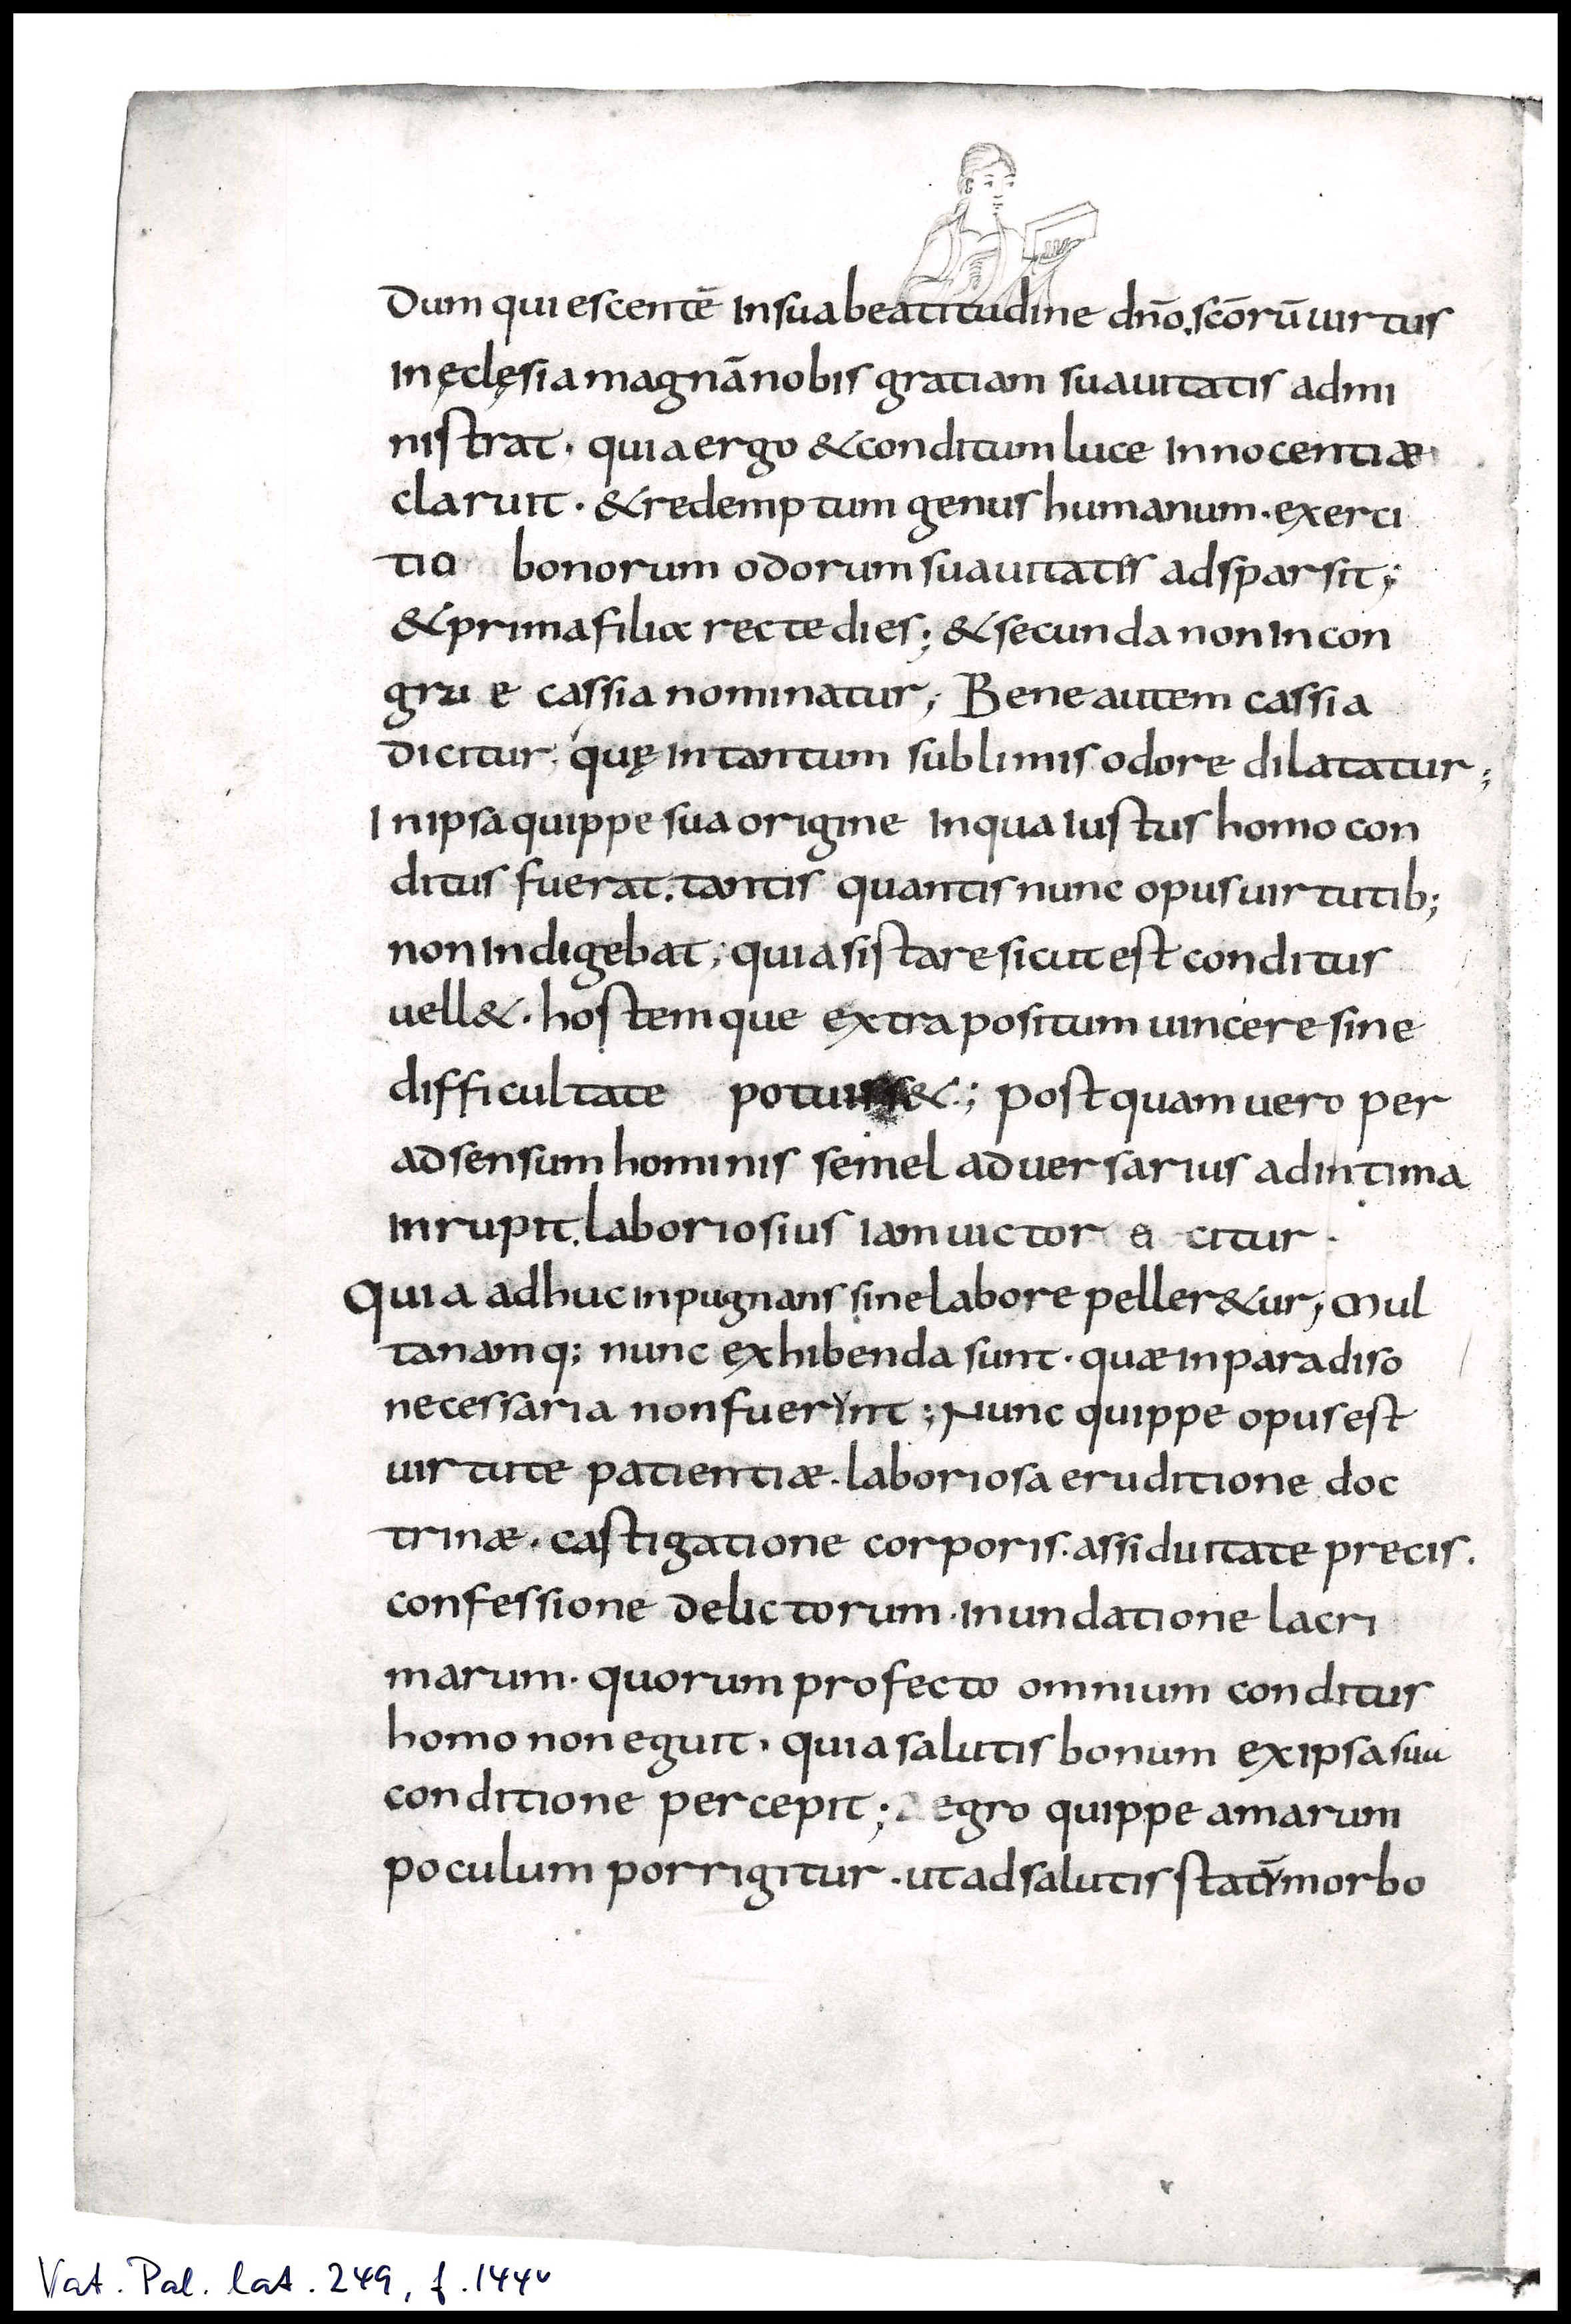 Dum quiescentē In sua beatitudine dn̄o. scōrū uirtus
In ęclęsia magnā nobis gratiam suauitatis admi
nistrat · quia ergo & conditum luce Innocentiæ
claruit · & redemptum genus humanum · exerci
tio bonorum odorum suauitatis adsparsit;
& prima filia recte dies; & secunda non Incon
grue cassia nominatur; Bene autem cassia
dicitur; quę In tantum sublimis odore dilatatur;
In ipsa quippe sua origine In qua Iustus homo con
ditus fuerat. tantis quantis nunc opus uirtutib;
non Indigebat; quia si stare sicut est conditus
uell& · hostemque extra positum uincere sine
difficultate potuiss&; postquam uero per
adsensum hominis semel aduersarius ad intima
Inrupit. laboriosius Iam uictor citur ·
Quia adhuc inpugnans sine labore peller&ur; Mul
ta namq; nunc exhibenda sunt · quæ in paradiso
necessaria non fuerint; Nunc quippe opus est
uirtute patientiæ · laboriosa eruditione doc
trinæ · castigatione corporis · assiduitate precis.
confessione delictorum · Inundatione lacri
marum · quorum profecto omnium conditus
homo non eguit · quia salutis bonum ex ipsa sua
conditione percepit; Aegro quippe amarum
poculum porrigitur · ut ad salutis statū morbo
Vat. Pal. lat. 249, f. 144v